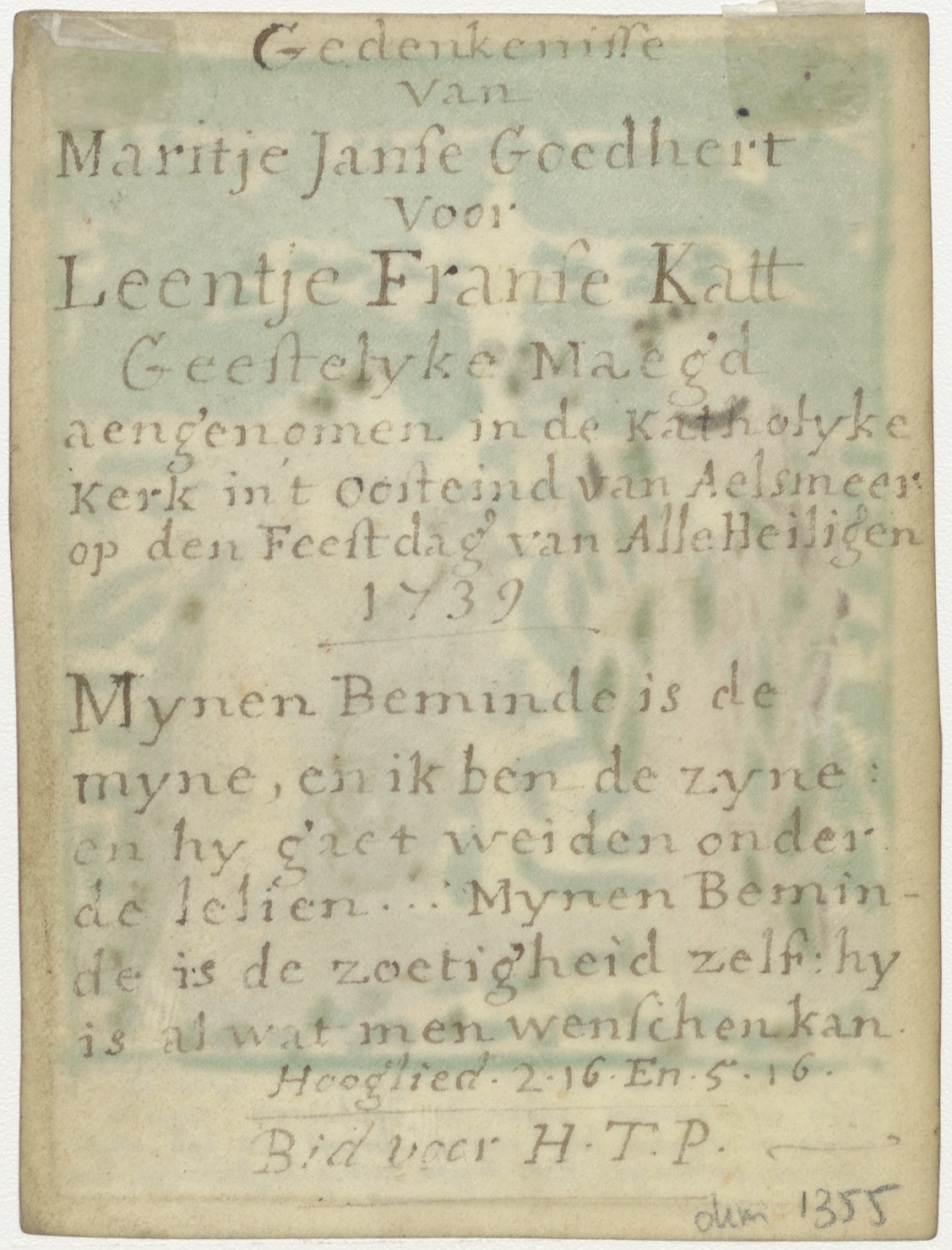 Gedenkenisſe
van
Maritje Janſe Goedhert
Voor
Leentje Franſe Katt
Geeſtelyke Maegd
aengenomen in de Katholyke
Kerk in't Ooſteind van Aelsmeer
op den Feeſtdag van Alle Heiligen
1739
Mynen Beminde is de
myne, en ik ben de zyne:
en hy gaet weiden onder
de lelien... Mynen Bemin-
de is de zoetigheid zelf: hy
is al wat men wenſchen kan.
Hooglied. 2.16. En. 5.16.
Bid voor H.T.P.
1355